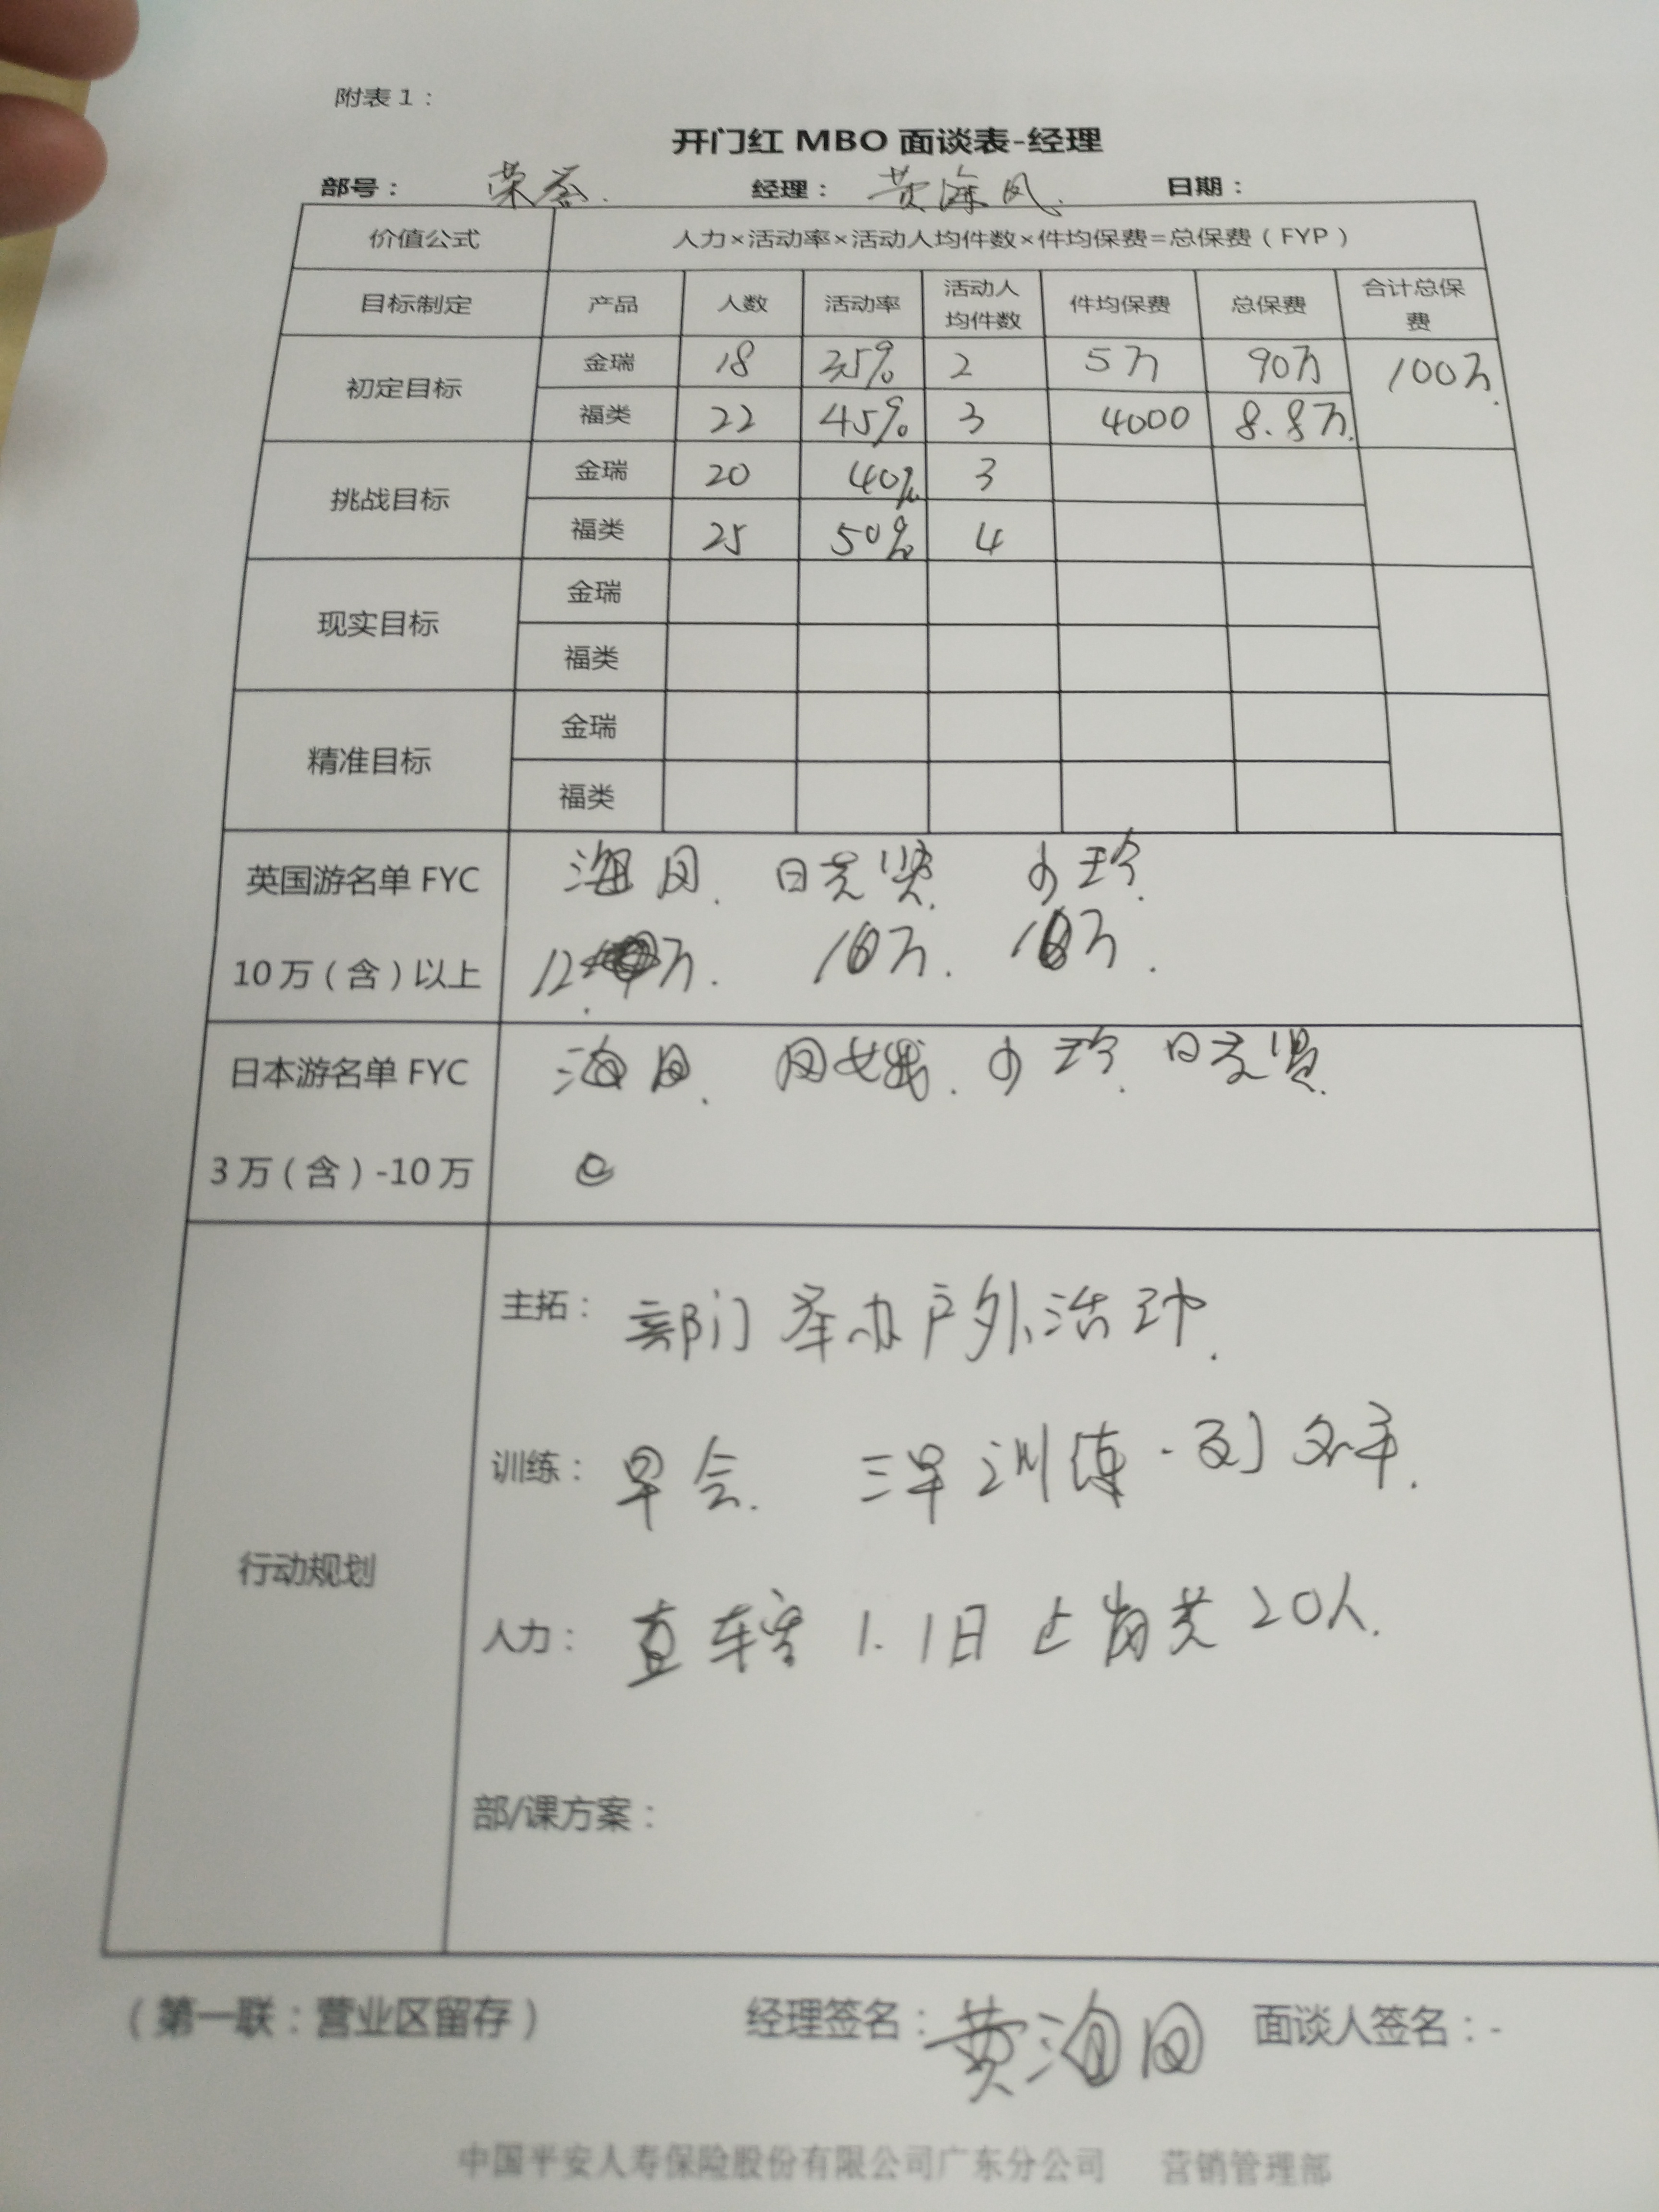 附表1：
开门红MBO面谈表-经理
部号： 荣誉. 经理： 黄海凤. 日期：
价值公式 人力×活动率×活动人均件数×件均保费=总保费（FYP）
目标制定 产品 人数 活动率 活动人均件数 件均保费 总保费 合计总保费
初定目标 金瑞 18 35% 2 5万 90万 100万.
福类 22 45% 3 4000 8.8万.
挑战目标 金瑞 20 40% 3
福类 25 50% 4
现实目标 金瑞
福类
精准目标 金瑞
福类
英国游名单FYC 海凤. 小玲.
10万（含）以上 12万. 10万. 10万.
日本游名单FYC 海凤. 小玲.
3万（含）-10万
行动规划
主拓： 部门举办户外活动.
训练： 早会. 三早训练.
人力： 直辖1.1日上岗共20人.
部/课方案：
（第一联：营业区留存） 经理签名： 黄海凤 面谈人签名：-
中国平安人寿保险股份有限公司广东分公司 营销管理部